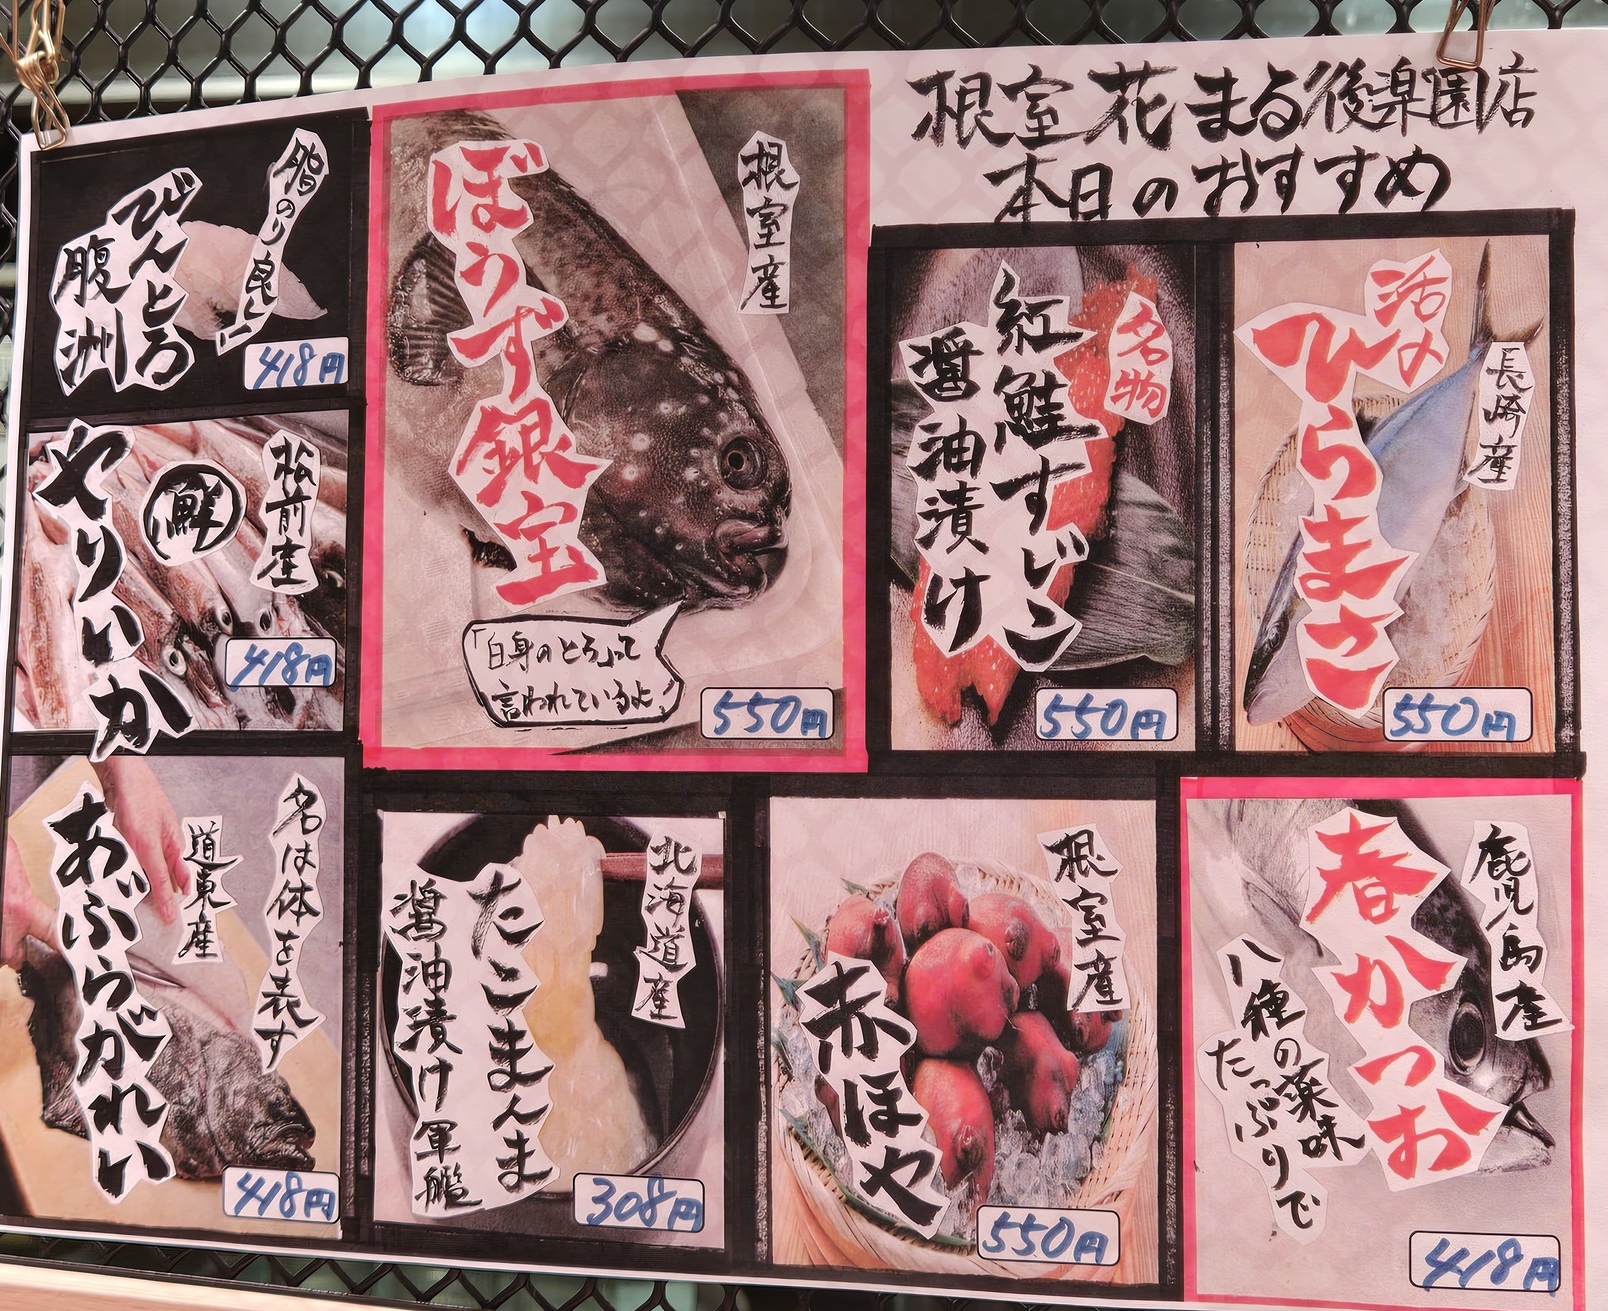 根室花まる後楽園店
本日のおすすめ
活〆
ひらまさ
長崎産
550円
名物
紅鮭すじこ
醤油漬け
550円
根室産
ぼうず銀宝
「白身のとろ」って
言われているよ!
550円
脂のり良し
びんとろ
腹洲
418円
松前産
鮮
やりいか
418円
鹿児島産
春かつお
八種の薬味
たっぷりで
418円
根室産
赤ほや
550円
北海道産
たこまんま
醤油漬け軍艦
308円
名は体を表す
道東産
あぶらがれい
418円